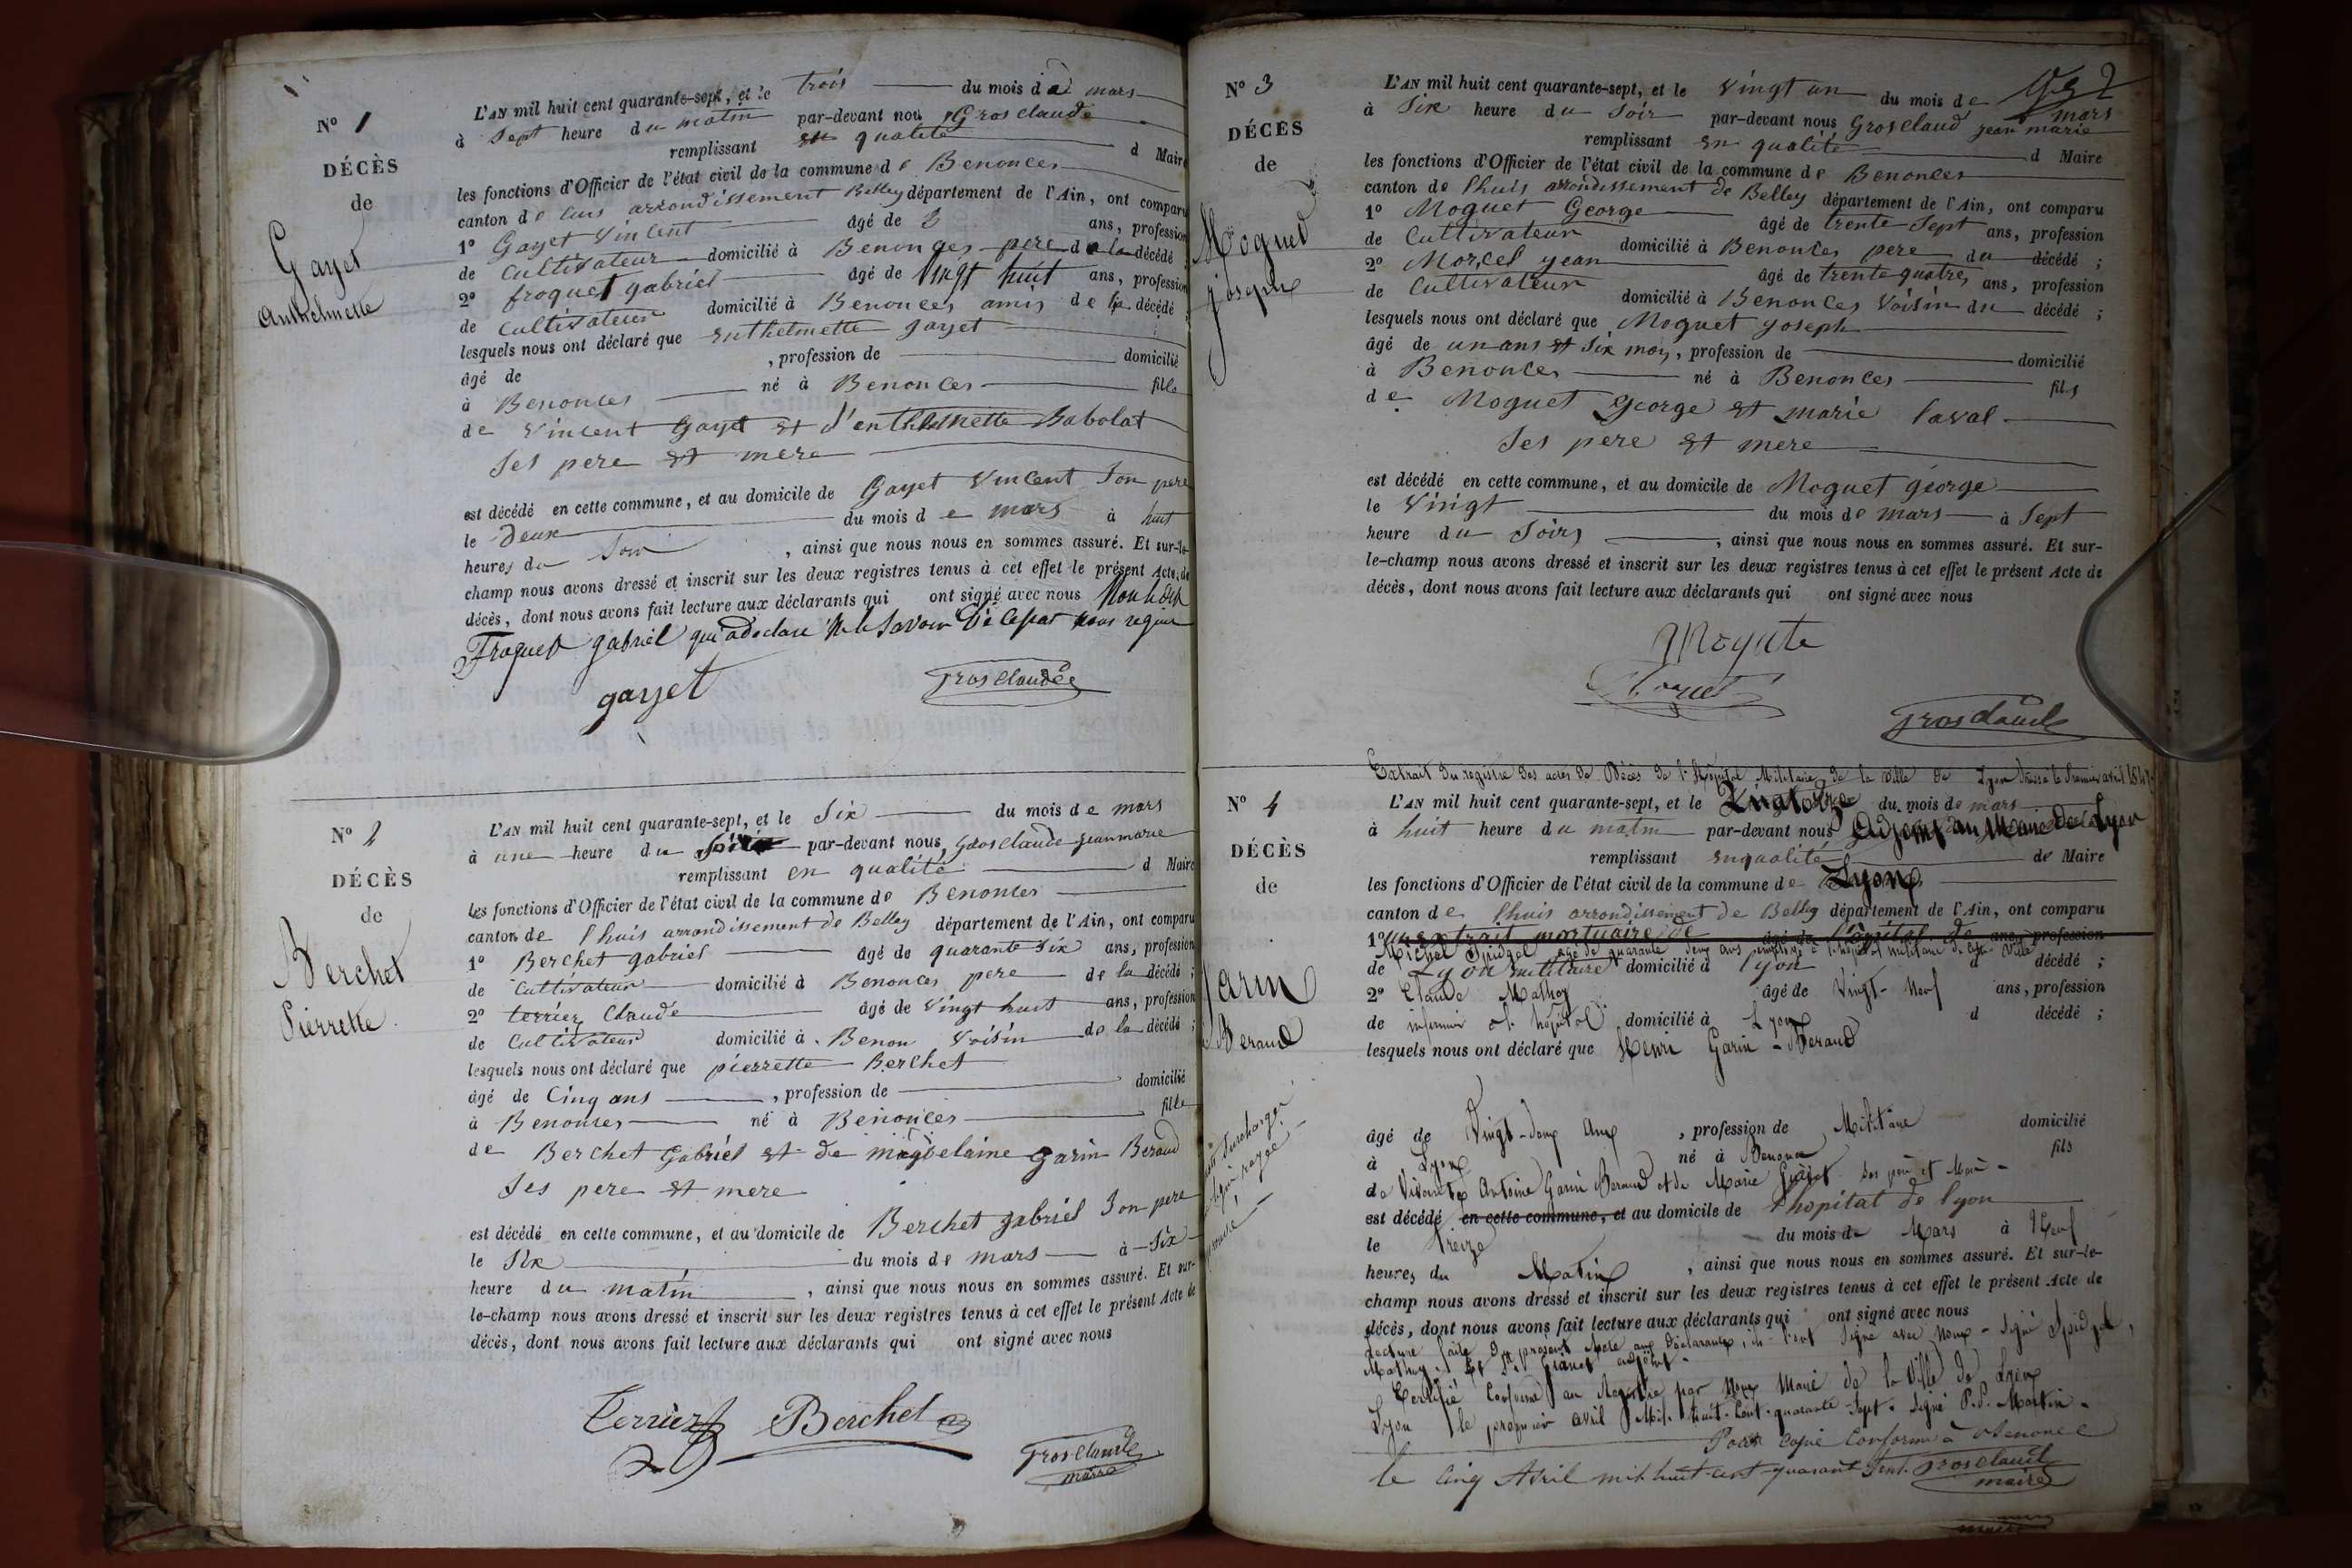 N° 1
DÉCÈS
de
Gayet
Anthelmette
L'AN mil huit cent quarante-sept, et le trois du mois de mars
à sept heure du matin par-devant nou Grosclaude
remplissant en qualité d Maire
les fonctions d'Officier de l'état civil de la commune de Benonces
canton de luis arrondissement Belley département de l'Ain, ont comparu
1° Gayet Vincent âgé de 3 ans, profession
de Cultivateur domicilié à Benonces pere de la décédé
2° froquet gabriel âgé de Vingt huit ans, profession
de Cultivateur domicilié à Benonces amis de la décédé ;
lesquels nous ont déclaré que enthelmette gayet
âgé de , profession de domicilié
à Benonces né à Benonces fille
de Vincent Gayet et d'enthelmette Babolat
Ses pere et mere
est décédé en cette commune, et au domicile de Gayet Vincent Son pere
le Deux du mois de mars à huit
heures du Soir , ainsi que nous nous en sommes assuré. Et sur-le-
champ nous avons dressé et inscrit sur les deux registres tenus à cet effet le présent Acte de
décès, dont nous avons fait lecture aux déclarants qui ont signé avec nous
Froquet gabriel qui a declaré ne le Savoir de
gayet
Grosclaude
N° 2
DÉCÈS
de
Berchet
Pierrette
L'AN mil huit cent quarante-sept, et le Six du mois de mars
à une heure du par-devant nous Grosclaude jean marie
remplissant en qualité d Maire
les fonctions d'Officier de l'état civil de la commune de Benonces
canton de lhuis arrondissement de Belley département de l'Ain, ont comparu
1° Berchet gabriel âgé de quarante Six ans, profession
de Cultivateur domicilié à Benonces pere de la décédé ;
2° terrier Claude âgé de Vingt huit ans, profession
de Cultivateur domicilié à Benon Voisin de la décédé ;
lesquels nous ont déclaré que pierrette Berchet
âgé de Cinq ans , profession de domicilié
à Benonces né à Benonces fille
de Berchet Gabriel et de magdelaine garin Beraud
Ses pere et mere
est décédé en cette commune, et au domicile de Berchet gabriel Son pere
le Six du mois de mars à Six
heure du matin , ainsi que nous nous en sommes assuré. Et sur-
le-champ nous avons dressé et inscrit sur les deux registres tenus à cet effet le présent Acte de
décès, dont nous avons fait lecture aux déclarants qui ont signé avec nous
Terrier Berchet
Grosclaude
maire
N° 3
DÉCÈS
de
Moquet
joseph
L'AN mil huit cent quarante-sept, et le Vingt un du mois de mars
à Six heure du Soir par-devant nous Grosclaud jean marie
remplissant en qualité d Maire
les fonctions d'Officier de l'état civil de la commune de Benonces
canton de lhuis arrondissement de Belley département de l'Ain, ont comparu
1° Moquet George âgé de trente Sept ans, profession
de Cultivateur domicilié à Benonces pere du décédé ;
2° Morcel jean âgé de trente quatre ans, profession
de Cultivateur domicilié à Benonces Voisin du décédé ;
lesquels nous ont déclaré que Moquet joseph
âgé de un ans et Six mois, profession de domicilié
à Benonces né à Benonces fils
de Moquet George et marie laval
Ses pere et mere
est décédé en cette commune, et au domicile de Moquet george
le Vingt du mois de mars à Sept
heure du Soirs , ainsi que nous nous en sommes assuré. Et sur-
le-champ nous avons dressé et inscrit sur les deux registres tenus à cet effet le présent Acte de
décès, dont nous avons fait lecture aux déclarants qui ont signé avec nous
Grosclaude
Extrait du registre des actes de Décès de l'Hôpital Militaire de la Ville de Lyon dressé le premier avril 1847
N° 4
DÉCÈS
de
Garin
Beraud
L'AN mil huit cent quarante-sept, et le du mois de mars
à huit heure du matin par-devant nous Adjoint au Maire de Lyon
remplissant en qualité de Maire
les fonctions d'Officier de l'état civil de la commune de Lyon
canton de lhuis arrondissement de Belley département de l'Ain, ont comparu
1° un extrait mortuaire de âgé de l'hopital de ans, profession
Michel Spidgel âgé de quarante deux ans employé à l'hôpital militaire de cette Ville
de Lyon militaire domicilié à lyon d décédé ;
2° Claude Mathey âgé de Vingt-Neuf ans, profession
de infirmier à l'hôpital domicilié à Lyon d décédé ;
lesquels nous ont déclaré que Henri Garin-Beraud
âgé de Vingt-deux ans , profession de Militaire domicilié
à Lyon né à Benonce fils
de Antoine Garin Beraud et de Marie Guitot Ses père et Mère
est décédé en cette commune, et au domicile de l'hopital de lyon
le Treize du mois de Mars à Neuf
heures du Matin , ainsi que nous nous en sommes assuré. Et sur-le-
champ nous avons dressé et inscrit sur les deux registres tenus à cet effet le présent Acte de
décès, dont nous avons fait lecture aux déclarants qui ont signé avec nous
Lecture faite du présent Acte aux Déclarants, ils l'ont Signé avec Nous - Signé Spidgel,
Mathey
Certifié Conforme au Registre par Nous Maire de la Ville de Lyon
Lyon le premier avril Mil-huit-Cent-quarante-Sept. Signé P.P. Martin.
Pour Copie Conforme à Benonce
le Cinq Avril mil huit cent quarant Sept. Grosclaude
maire